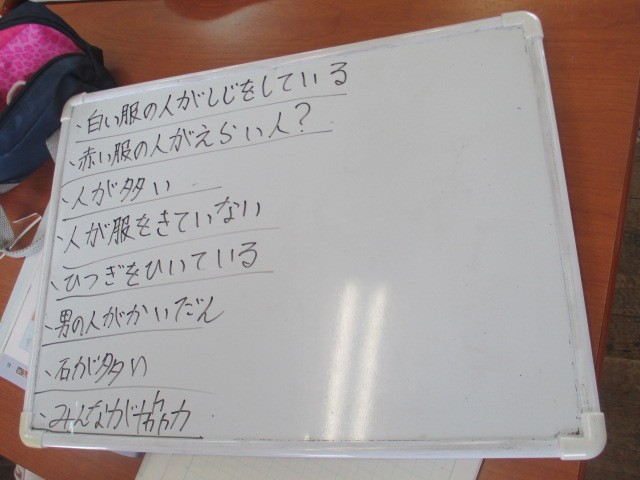 ・白い服の人がしじをしている
・赤い服の人がえらい人?
・人が多い
・人が服をきていない
・ひつぎをひいている
・男の人がかいだん
・石が多い
・みんなが協力